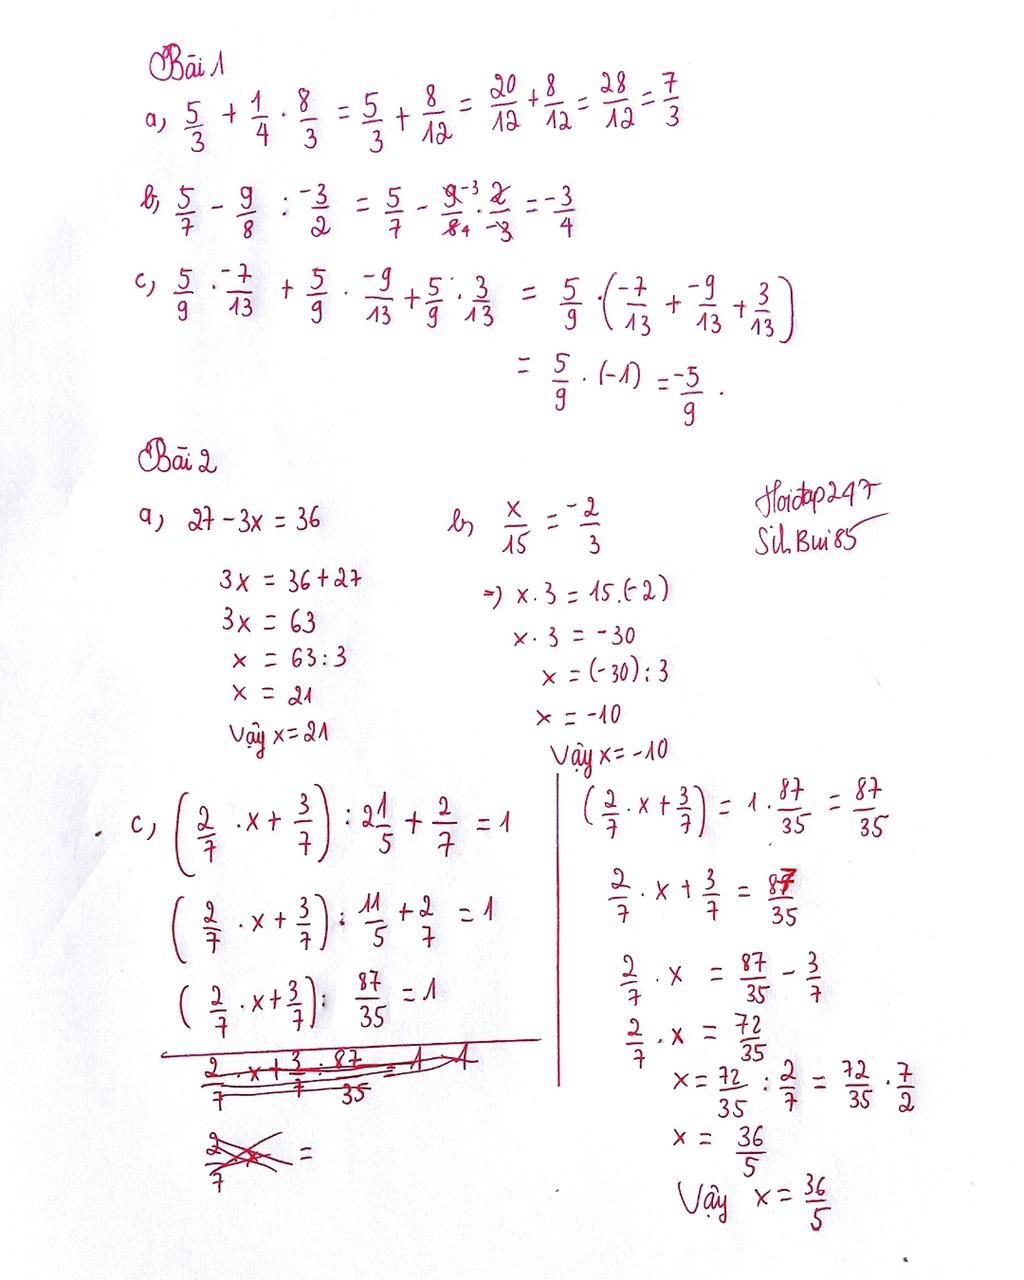 Bài 1
a, 5/3 + 1/4 . 8/3 = 5/3 + 8/12 = 20/12 + 8/12 = 28/12 = 7/3
b, 5/7 - 9/8 : -3/2 = 5/7 - 9 -3/8 4 . 2/-3 = -3/4
c, 5/9 . -7/13 + 5/9 . -9/13 + 5/9 . 3/13 = 5/9 . (-7/13 + -9/13 + 3/13)
= 5/9 . (-1) = -5/9 .
Bài 2
Hoidap247
SihBui85
a, 27 - 3x = 36
3x = 36 + 27
3x = 63
x = 63 : 3
x = 21
Vậy x = 21
b, x/15 = -2/3
=) x . 3 = 15.(-2)
x . 3 = -30
x = (-30) : 3
x = -10
Vậy x = -10
c, (2/7 . x + 3/7) : 2 1/5 + 2/7 = 1
(2/7 . x + 3/7) : 11/5 + 2/7 = 1
(2/7 . x + 3/7) : 87/35 = 1
2/7 . x + 3/7 : 87/35 = 1
2/7 x =
(2/7 . x + 3/7) = 1 . 87/35 = 87/35
2/7 . x + 3/7 = 87/35
2/7 . x = 87/35 - 3/7
2/7 . x = 72/35
x = 72/35 : 2/7 = 72/35 . 7/2
x = 36/5
Vậy x = 36/5